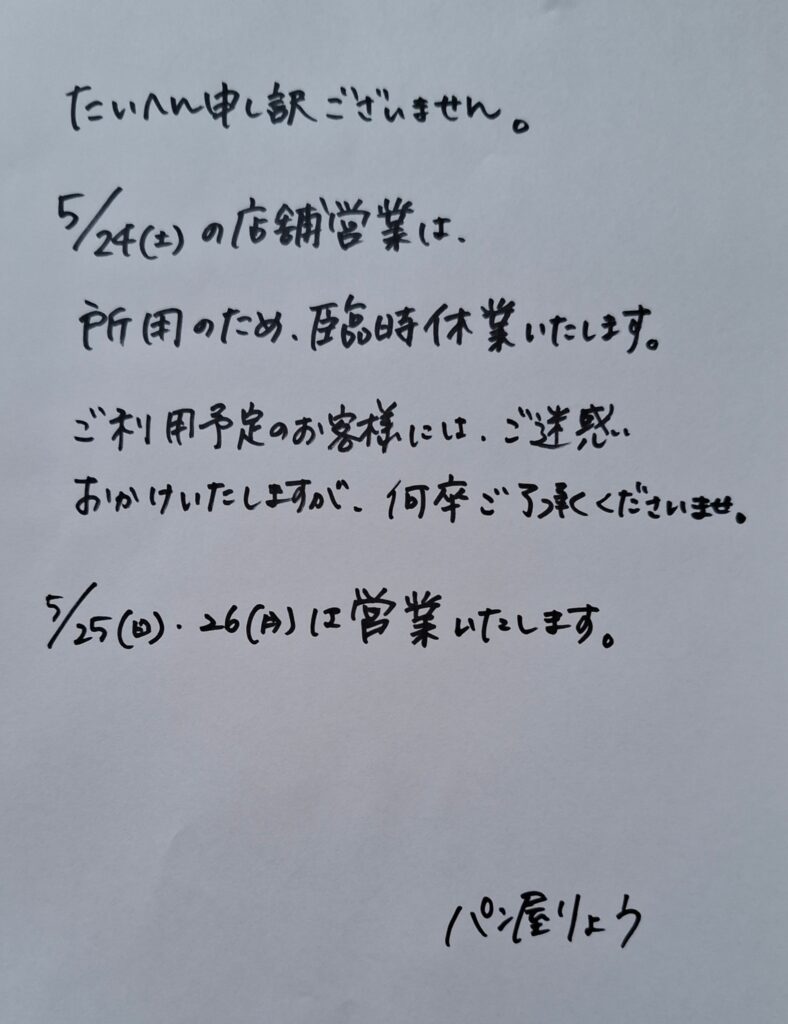 たいへん申し訳ございません。
5/24(土)の店舗営業は、
所用のため、臨時休業いたします。
ご利用予定のお客様には、ご迷惑
おかけいたしますが、何卒ご了承くださいませ。
5/25(日)・26(月)は営業いたします。
パン屋りょう